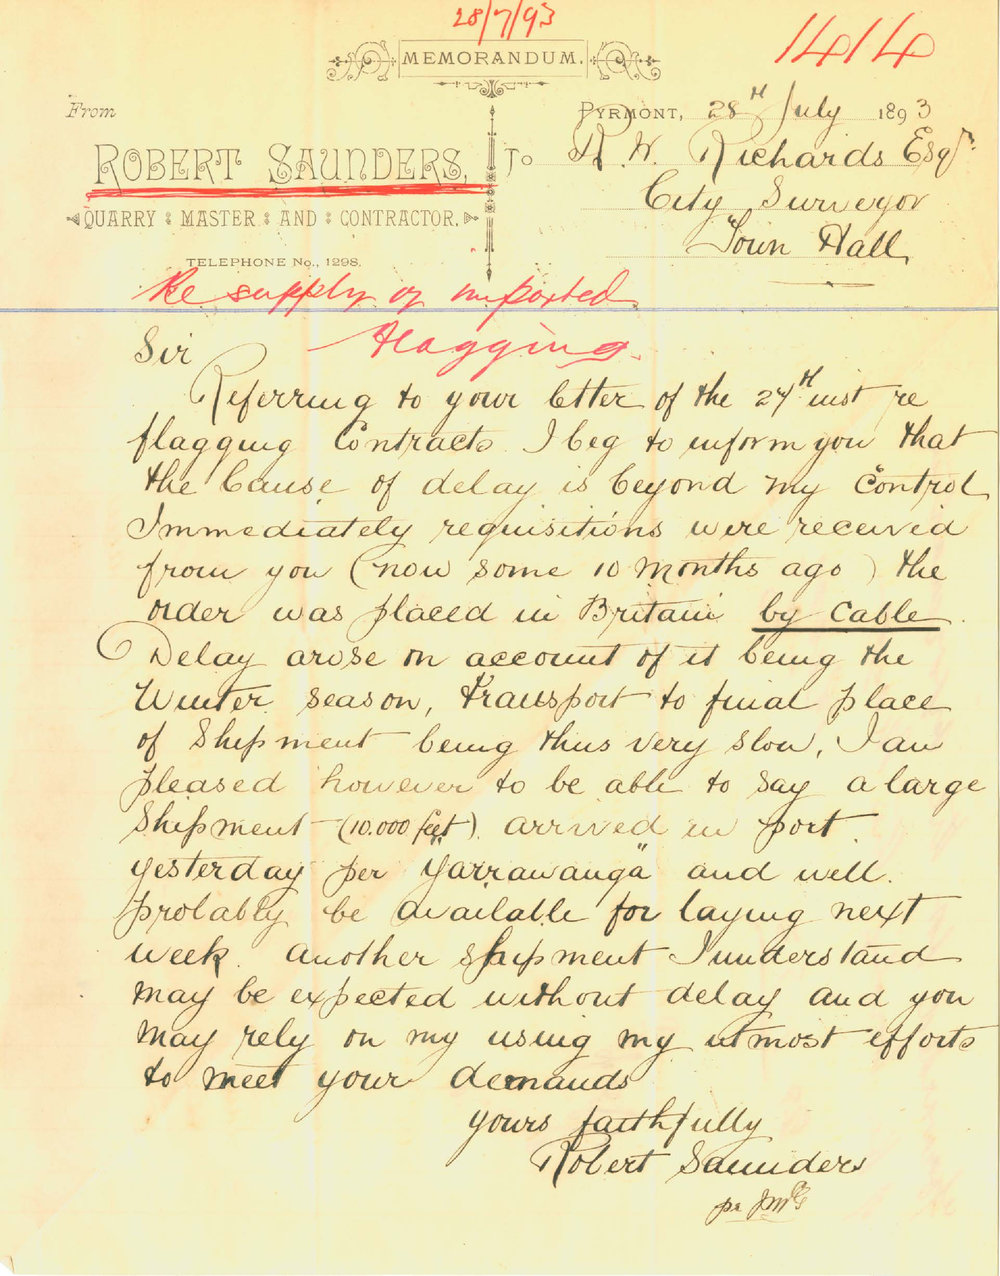 28/7/93
1414
MEMORANDUM.
From
PYRMONT, 28th July 1893
ROBERT SAUNDERS,
To R. W. Richards Esqr.
QUARRY MASTER AND CONTRACTOR.
City Surveyor
Town Hall
TELEPHONE No., 1298.
Re supply of imported
flagging.
Sir
Referring to your letter of the 27th inst re
flagging Contracts. I beg to inform you that
the Cause of delay is beyond my Control
Immediately requisitions were received
from you (now some 10 months ago) the
order was placed in Britain by Cable.
Delay arose on account of it being the
Winter season, transport to final place
of Shipment being thus very slow, I am
pleased however to be able to say a large
Shipment (10.000 feet) arrived in port
yesterday per "Yarrawanga" and will
probably be available for laying next
week. another shipment I understand
may be expected without delay and you
may rely on my using my utmost efforts
to meet your demands
yours faithfully
Robert Saunders
pr JMcG